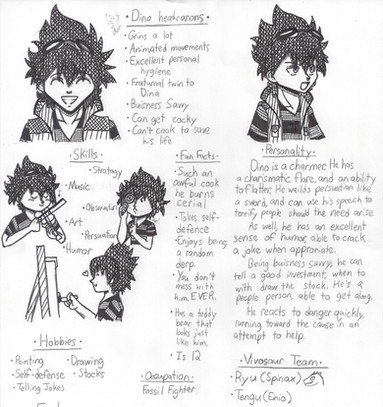 • Dina headcasons •
• Grins a lot
• Animated movements
• Excellent personal
hygiene
• Fraturnal twin to
Dina
• Buisness Savvy
• Can get cocky
• Can't cook to save
his life
• Skills •
• Strategy
• Music
• Observation
• Art
• Persuation
• Humor
• Fun Facts •
• Such an
awful cook
he burns
cerial
• Takes self-
defence
• Enjoys being
a random
derp
• You don't
mess with
him. EVER.
• Has a teddy
bear that
looks just
like him.
• Is 12
• Personality •
Dino is a charmer. He has
a charismatic flare, and an ability
to flatter. He weilds persuation like
a sword, and can use his speech to
terrify people should the need arise.
As well, he has an excellent
sense of humor, able to crack
a joke when approriate.
Being buisness savvy, he can
tell a good investment, when to
with draw the stock. He's a
people person, able to get along.
He reacts to danger quickly,
running toward the cause in an
attempt to help.
• Hobbies •
• Painting • Drawing
• Self-defense • Stocks
• Telling Jokes
• Occupation •
Fossil Fighter
• Vivosaur Team •
Ryu (Spinax)
Tengu (Enio)